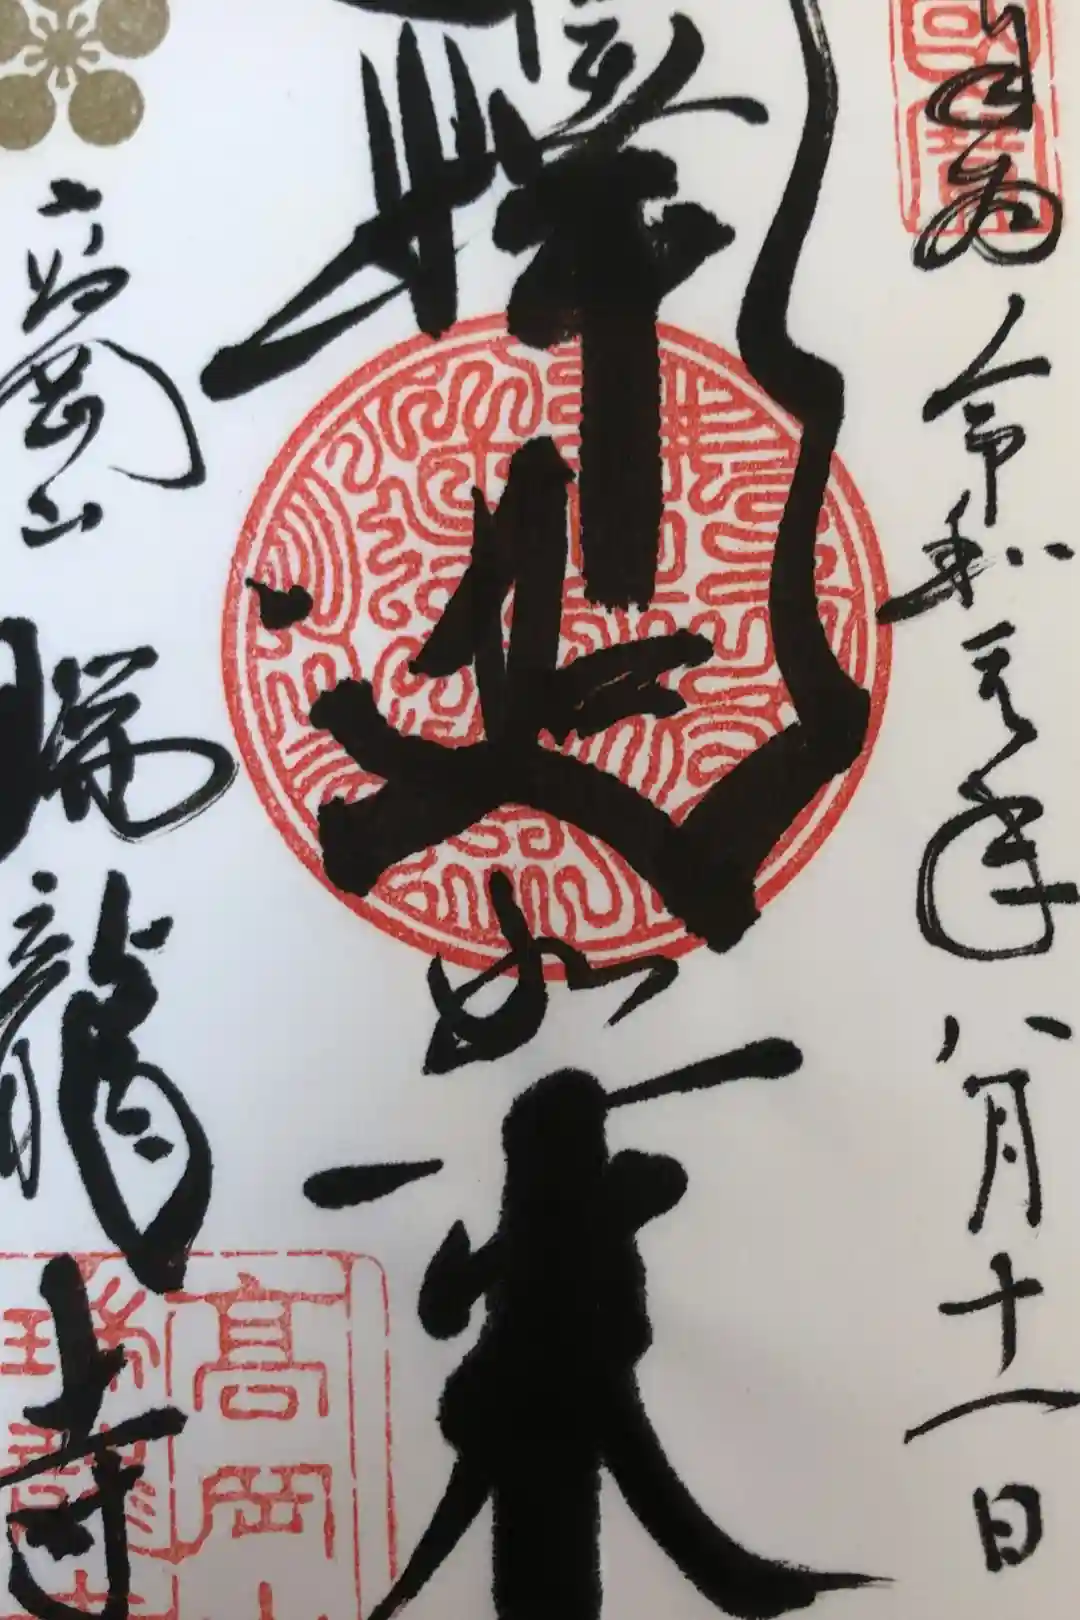 為
令和元年八月十一日
釋迦如来
高岡山
瑞龍寺
高岡山
瑞龍寺